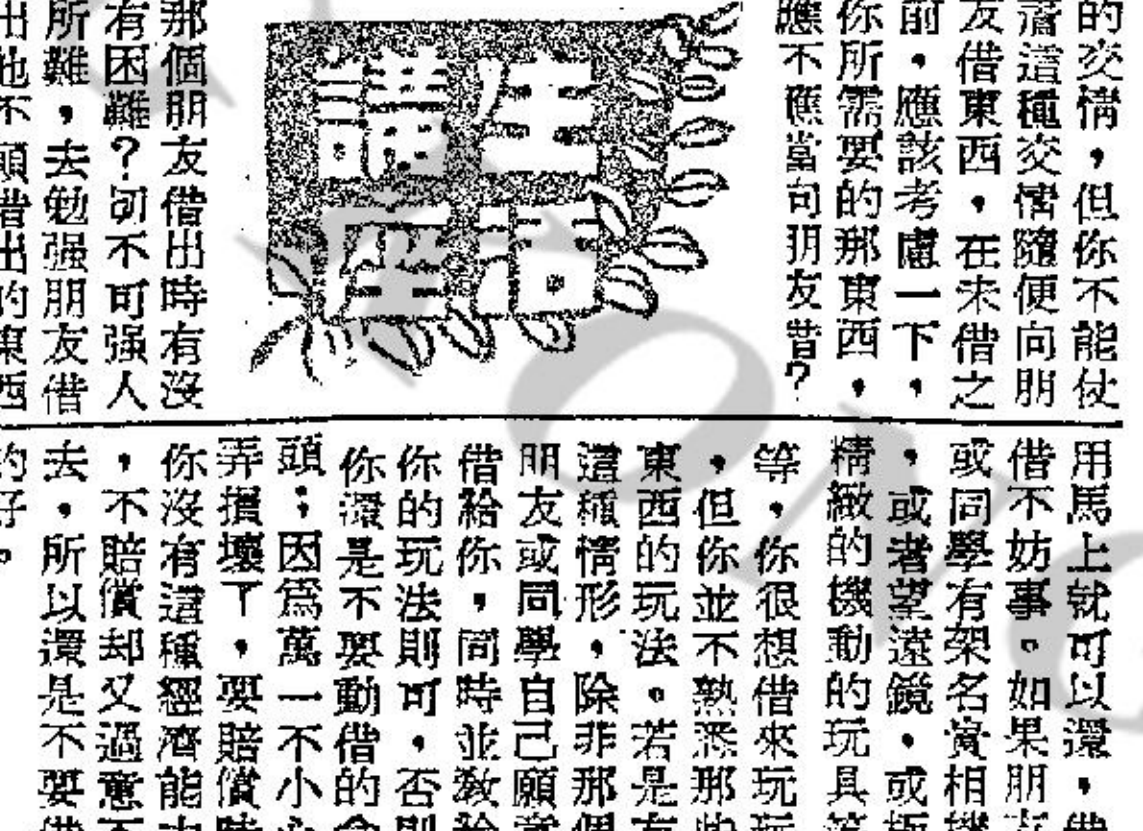 的交情，但你不能仗
著這種交情隨便向朋
友借東西，在未借之
前，應該考慮一下，
你所需要的那東西，
應不應當向朋友借？
生活
講座
那個朋友借出時有沒
有困難？切不可强人
所難，去勉强朋友借
出他不願借出的東西
用馬上就可以還，
借不妨事。如果朋
或同學有架名貴相機
，或者望遠鏡，或
精緻的機動的玩具等
等，你很想借來玩玩
，但你並不熟悉那些
東西的玩法。若是有
這種情形，除非那個
朋友或同學自己願意
借給你，同時並敎給
你的玩法則可，否則
你還是不要動借的念
頭；因爲萬一不小心
弄損壞了，要賠償時
你沒有這種經濟能力
，不賠償却又過意不
去，所以還是不要借
的好。